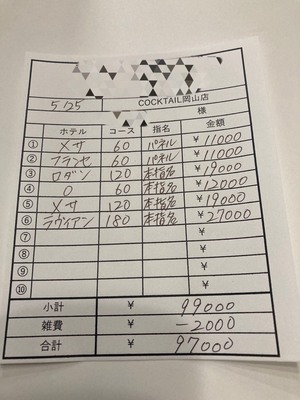 5/25 COCKTAIL岡山店
様
ホテル コース 指名 金額
① メサ 60 パネル ¥11000
② フランセ 60 パネル ¥11000
③ ロダン 120 本指名 ¥19000
④ O 60 本指名 ¥12000
⑤ メサ 120 本指名 ¥19000
⑥ ラヴィアン 180 本指名 ¥27000
⑦ ¥
⑧ ¥
⑨ ¥
⑩ ¥
小計 ¥ 99000
雑費 ¥ -2000
合計 ¥ 97000